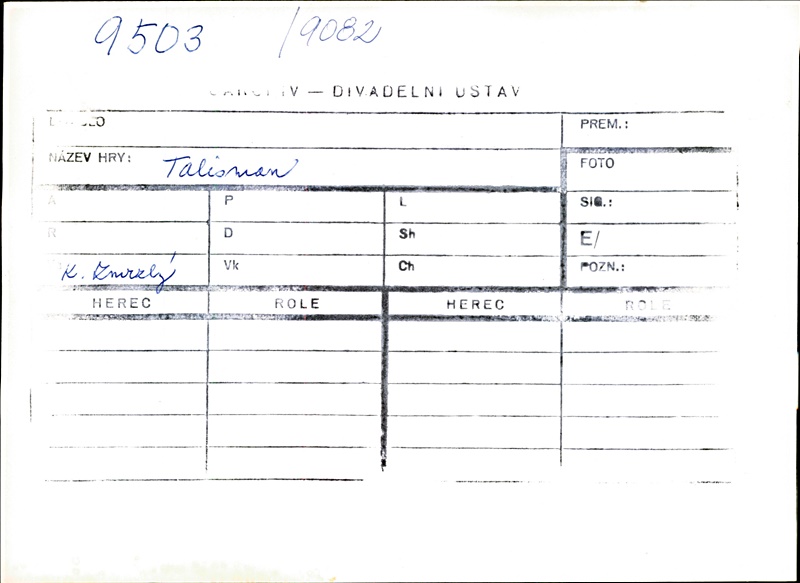 9503 /9082
IV — DIVADELNÍ ÚSTAV
PREM.:
NÁZEV HRY: Talisman
FOTO
A P L SIG.:
R D Sh E/
K. Zmrzlý Vk Ch POZN.:
HEREC ROLE HEREC ROLE